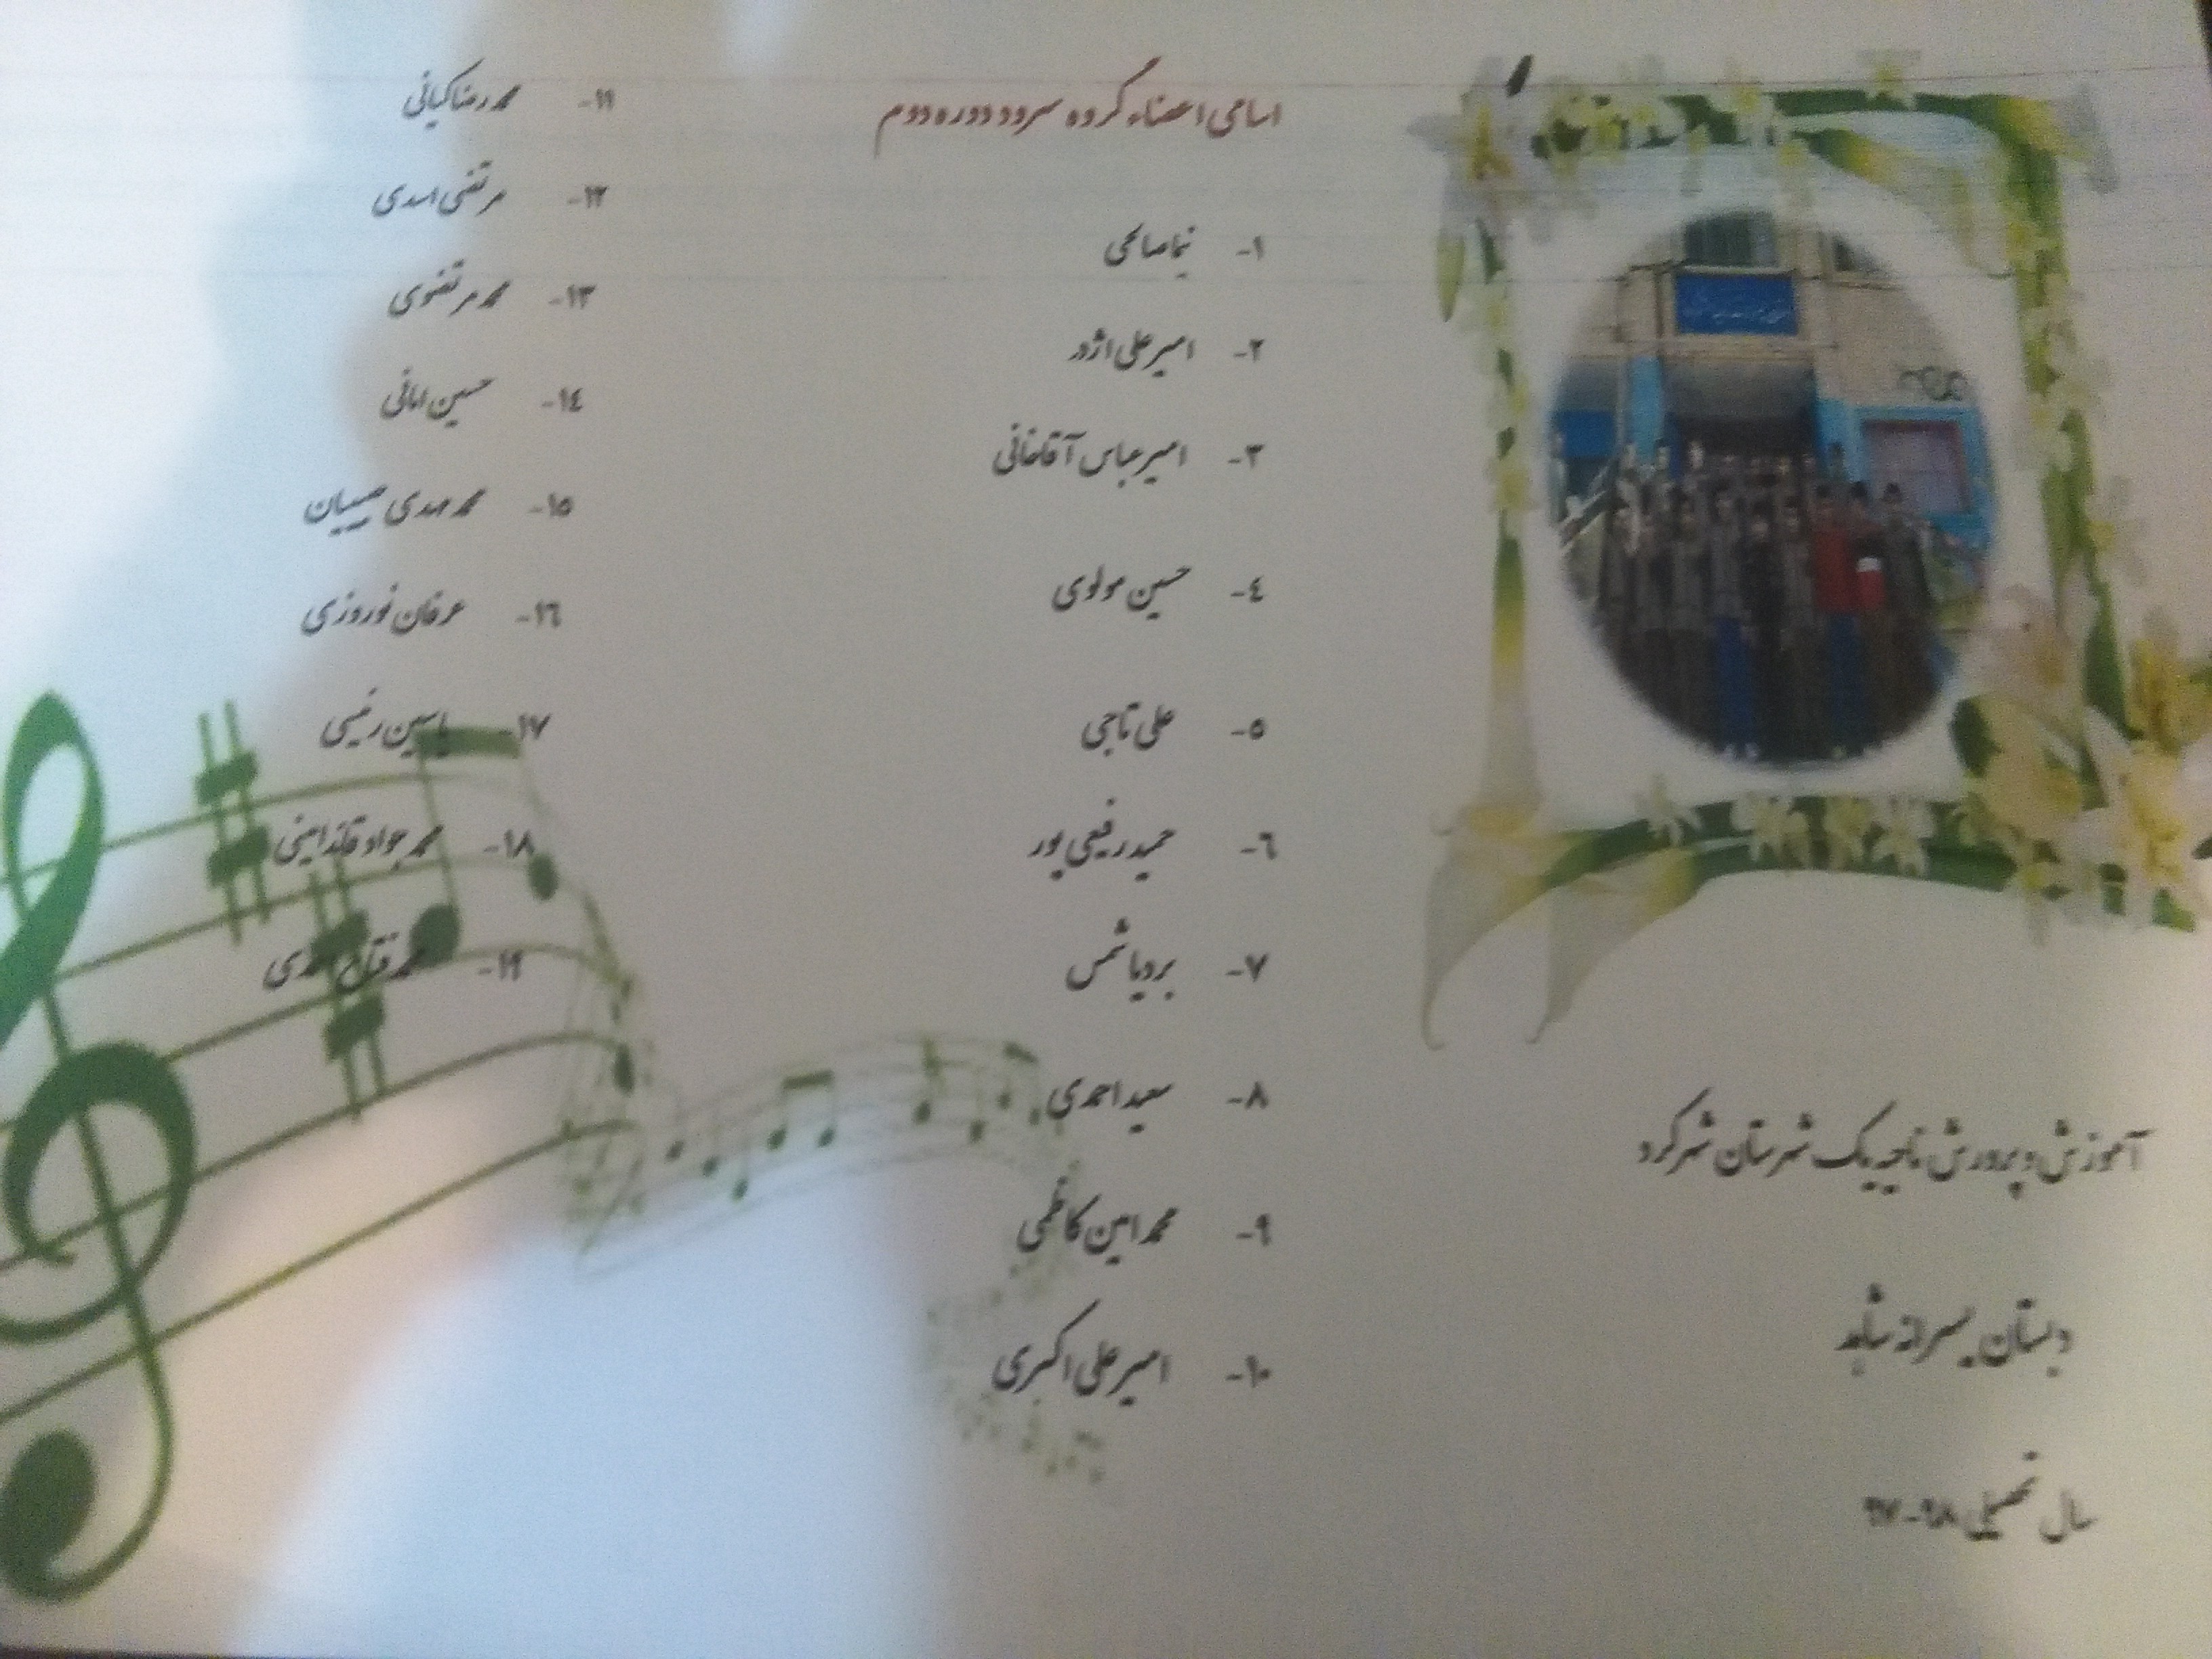 اسامی اعضاء گروه سرود دوره دوم
۱- نیما صالحی
۲- امیرعلی اژدر
۳- امیرعباس آقاخانی
٤- حسین مولوی
٥- علی تاجی
٦- حمید رفیعی پور
۷- بردیا شمس
۸- سعید احمدی
۹- محمد امین کاظمی
۱۰- امیرعلی اکبری
۱۱- محمدرضا کیانی
۱۲- مرتضی اسدی
۱۳- محمد مرتضوی
۱٤- حسین امانی
۱٥- محمد مهدی حبیبیان
۱٦- عرفان نوروزی
۱۷- یاسین رئیسی
۱۸- محمد جواد قائدامینی
۱۹- محمد
آموزش و پرورش ناحیه یک شهرستان شهرکرد
دبستان پسرانه شاهد
سال تحصیلی ۹۸-۹۷